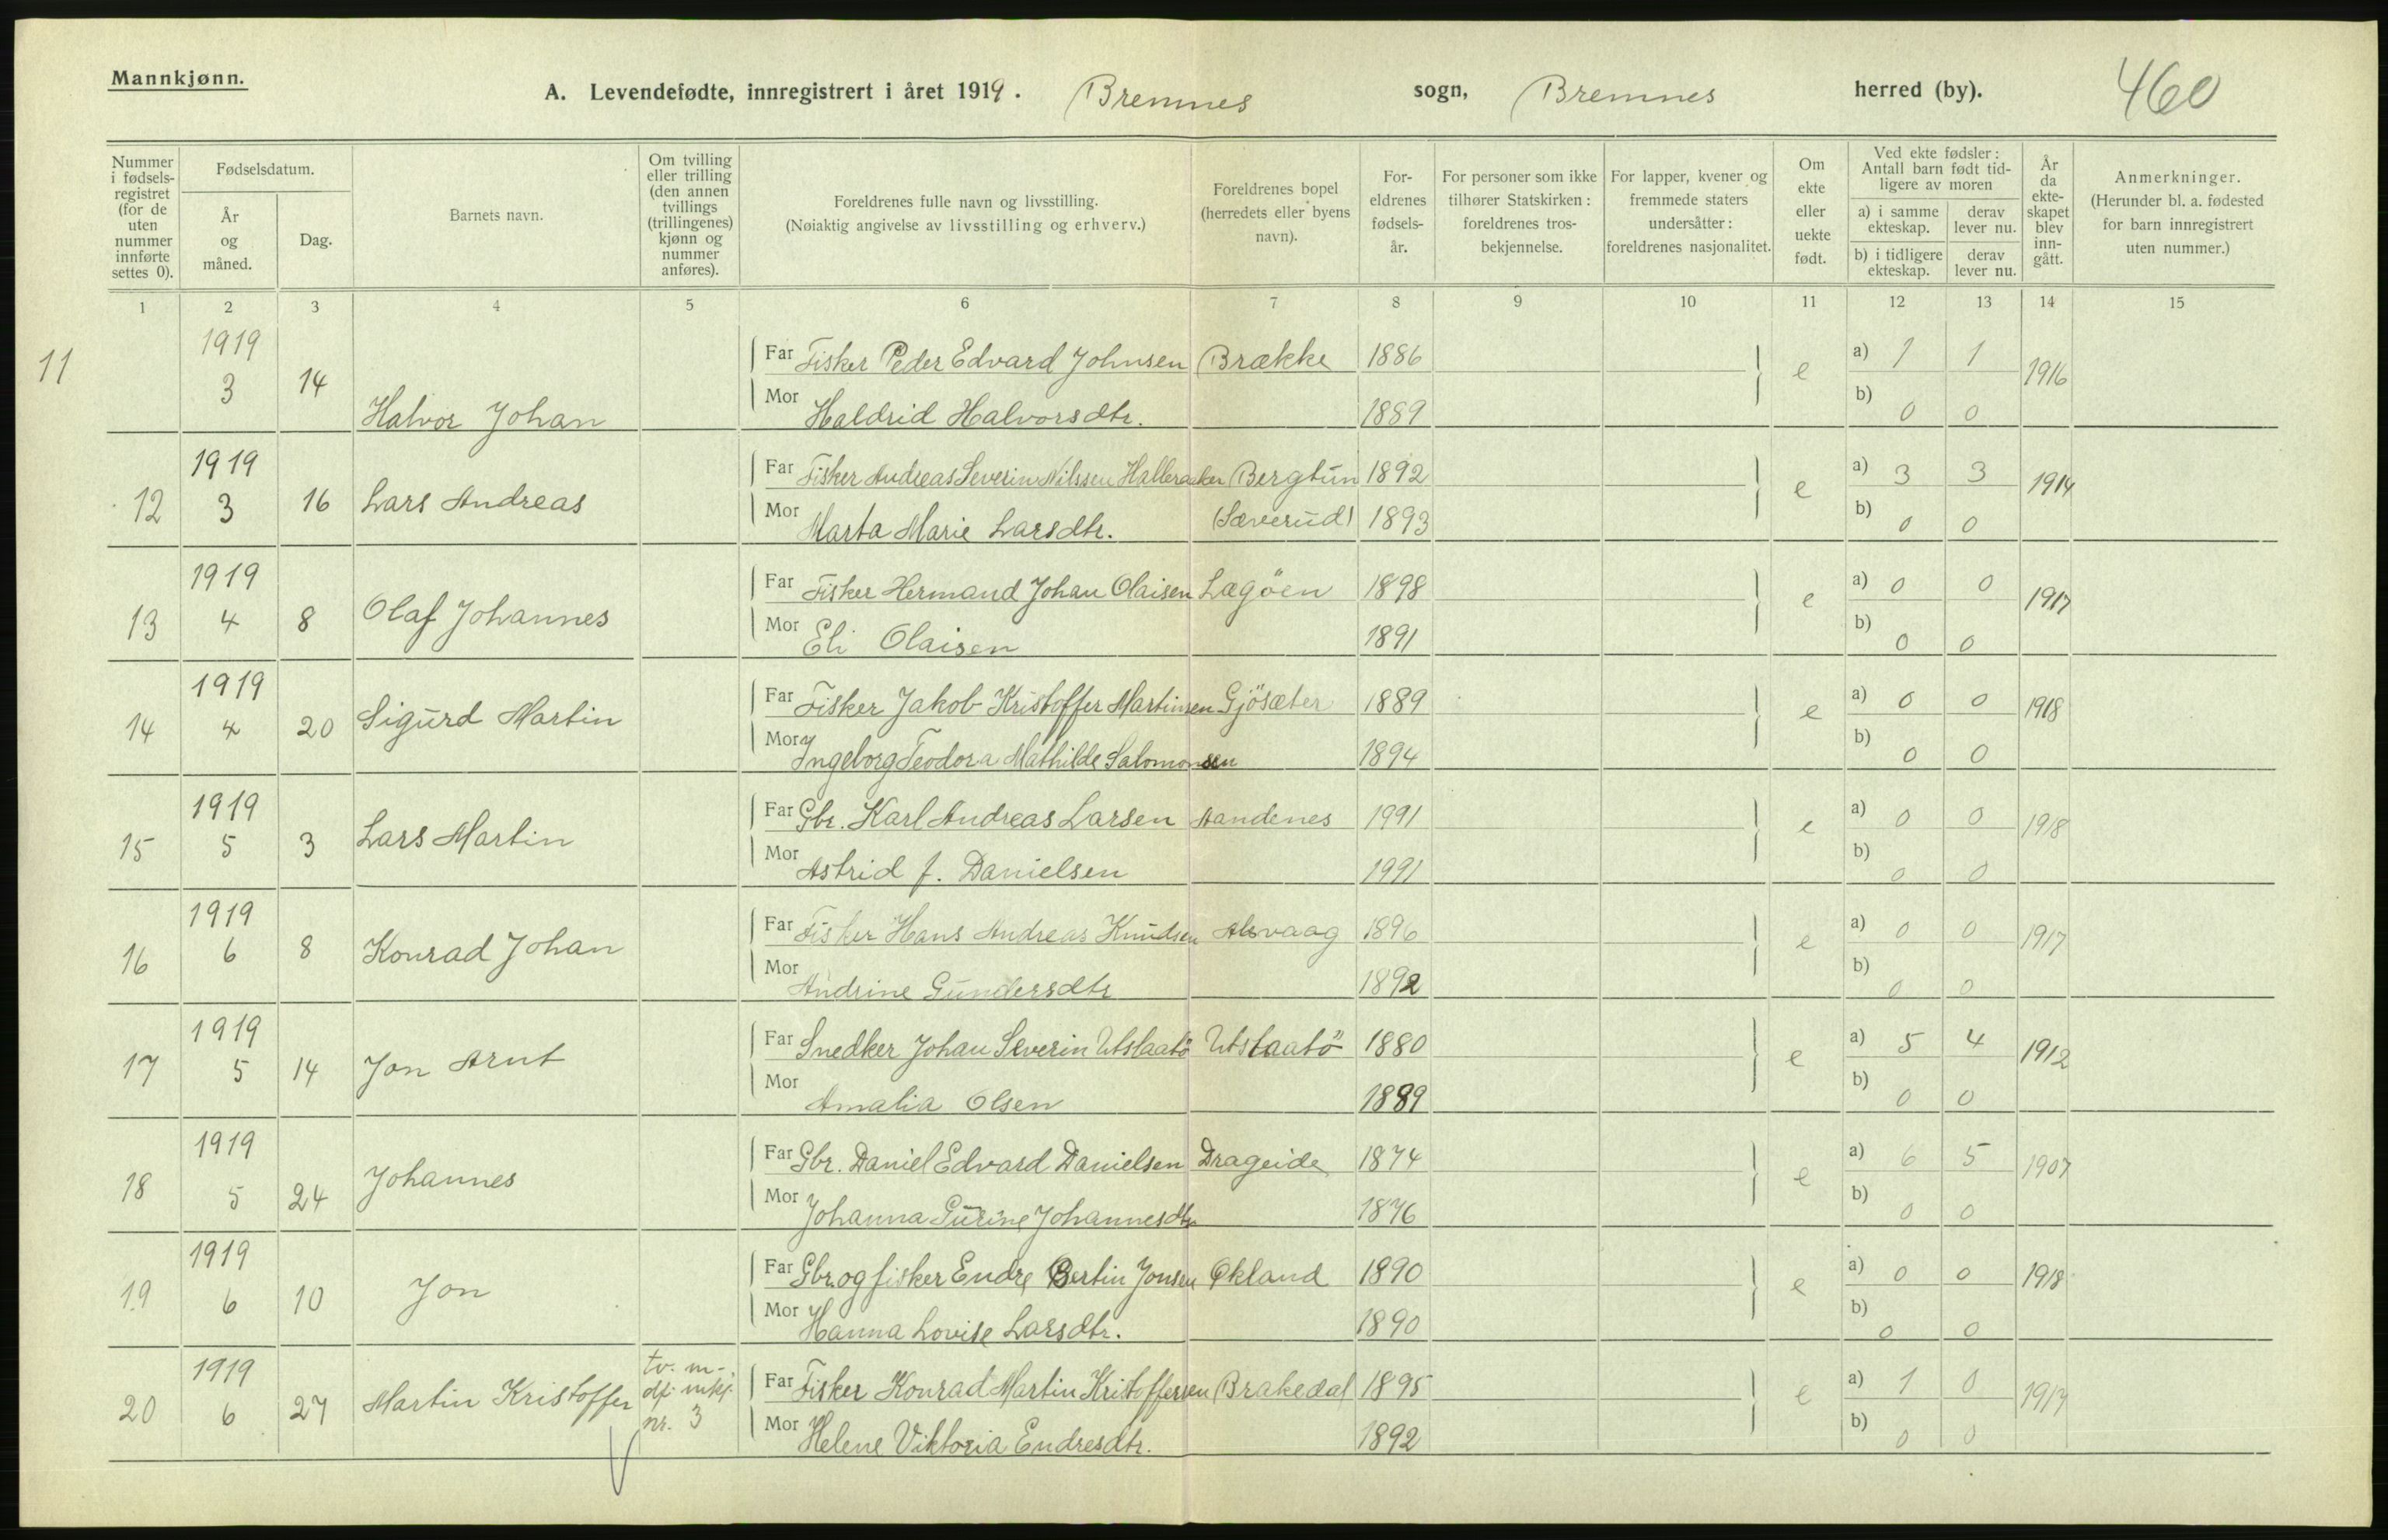 Mannkjønn.
A. Levendefødte, innregistrert i året 1919. Bremnes sogn, Bremnes herred (by). 460
Nummer i fødsels-registret (for de uten nummer innførte settes 0).
Fødselsdatum.
År og måned.
Dag.
Barnets navn.
Om tvilling eller trilling (den annen tvillings (trillingenes) kjønn og nummer anføres).
Foreldrenes fulle navn og livsstilling.
(Nøiaktig angivelse av livsstilling og erhverv.)
Foreldrenes bopel (herredets eller byens navn).
For-eldrenes fødsels-år.
For personer som ikke tilhører Statskirken: foreldrenes tros-bekjennelse.
For lapper, kvener og fremmede staters undersåtter: foreldrenes nasjonalitet.
Om ekte eller uekte født.
Ved ekte fødsler: Antall barn født tid-ligere av moren
a) i samme ekteskap. derav lever nu.
b) i tidligere ekteskap. derav lever nu.
År da ekte-skapet blev inn-gått.
Anmerkninger.
(Herunder bl. a. fødested for barn innregistrert uten nummer.)
1 2 3 4 5 6 7 8 9 10 11 12 13 14 15
11 1919 3 14 Halvor Johan Far Fisker Peder Edvard Johnsen Brække 1886 e a) 1 1 1916
Mor Haldrid Halvorsdtr. 1889 b) 0 0
12 1919 3 16 Lars Andreas Far Fisker Andreas Severin Nilssen Halleraker Bergtun 1892 e a) 3 3 1914
Mor Marta Marie Larsdtr. (Sæverud) 1893 b) 0 0
13 1919 4 8 Olaf Johannes Far Fisker Hermand Johan Olaisen Lægöen 1898 e a) 0 0 1917
Mor Eli Olaisen 1891 b) 0 0
14 1919 4 20 Sigurd Martin Far Fisker Jakob Kristoffer Martinsen Gjösæter 1889 e a) 0 0 1918
Mor Ingeborg Teodora Mathilde Salomonsen 1894 b) 0 0
15 1919 5 3 Lars Martin Far Gbr. Karl Andreas Larsen Aandenes 1991 e a) 0 0 1918
Mor Astrid f. Danielsen 1991 b) 0 0
16 1919 6 8 Konrad Johan Far Fisker Hans Andreas Knudsen Alsvaag 1896 e a) 0 0 1917
Mor Andrine Gundersdtr 1892 b) 0 0
17 1919 5 14 Jon Arnt Far Snedker Johan Severin Utslaatö Utslaatö 1880 e a) 5 4 1912
Mor Amalia Olsen 1889 b) 0 0
18 1919 5 24 Johannes Far Gbr. Daniel Edvard Danielsen Drageide 1874 e a) 6 5 1907
Mor Johanna Gurine Johannesdtr 1876 b) 0 0
19 1919 6 10 Jon Far Gbr og fisker Endre Bertin Jonsen Økland 1890 e a) 0 0 1918
Mor Hanna Lovise Larsdtr. 1890 b) 0 0
20 1919 6 27 Martin Kristoffer tv. m. df. mkj. nr. 3 Far Fisker Konrad Martin Kristoffersen Brakedal 1895 e a) 1 0 1917
Mor Helene Viktoria Endresdtr. 1892 b) 0 0